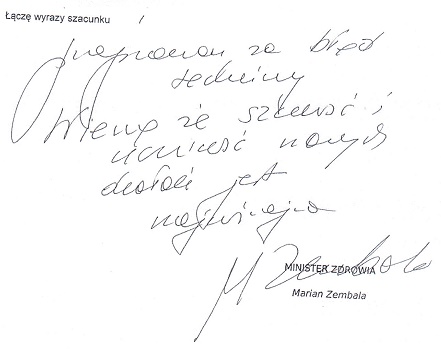 Łączę wyrazy szacunku i
przepraszam za błąd
Wierzę że szczerość i
uczciwość naszych
działań jest
najważniejsza
M Zembala
MINISTER ZDROWIA
Marian Zembala